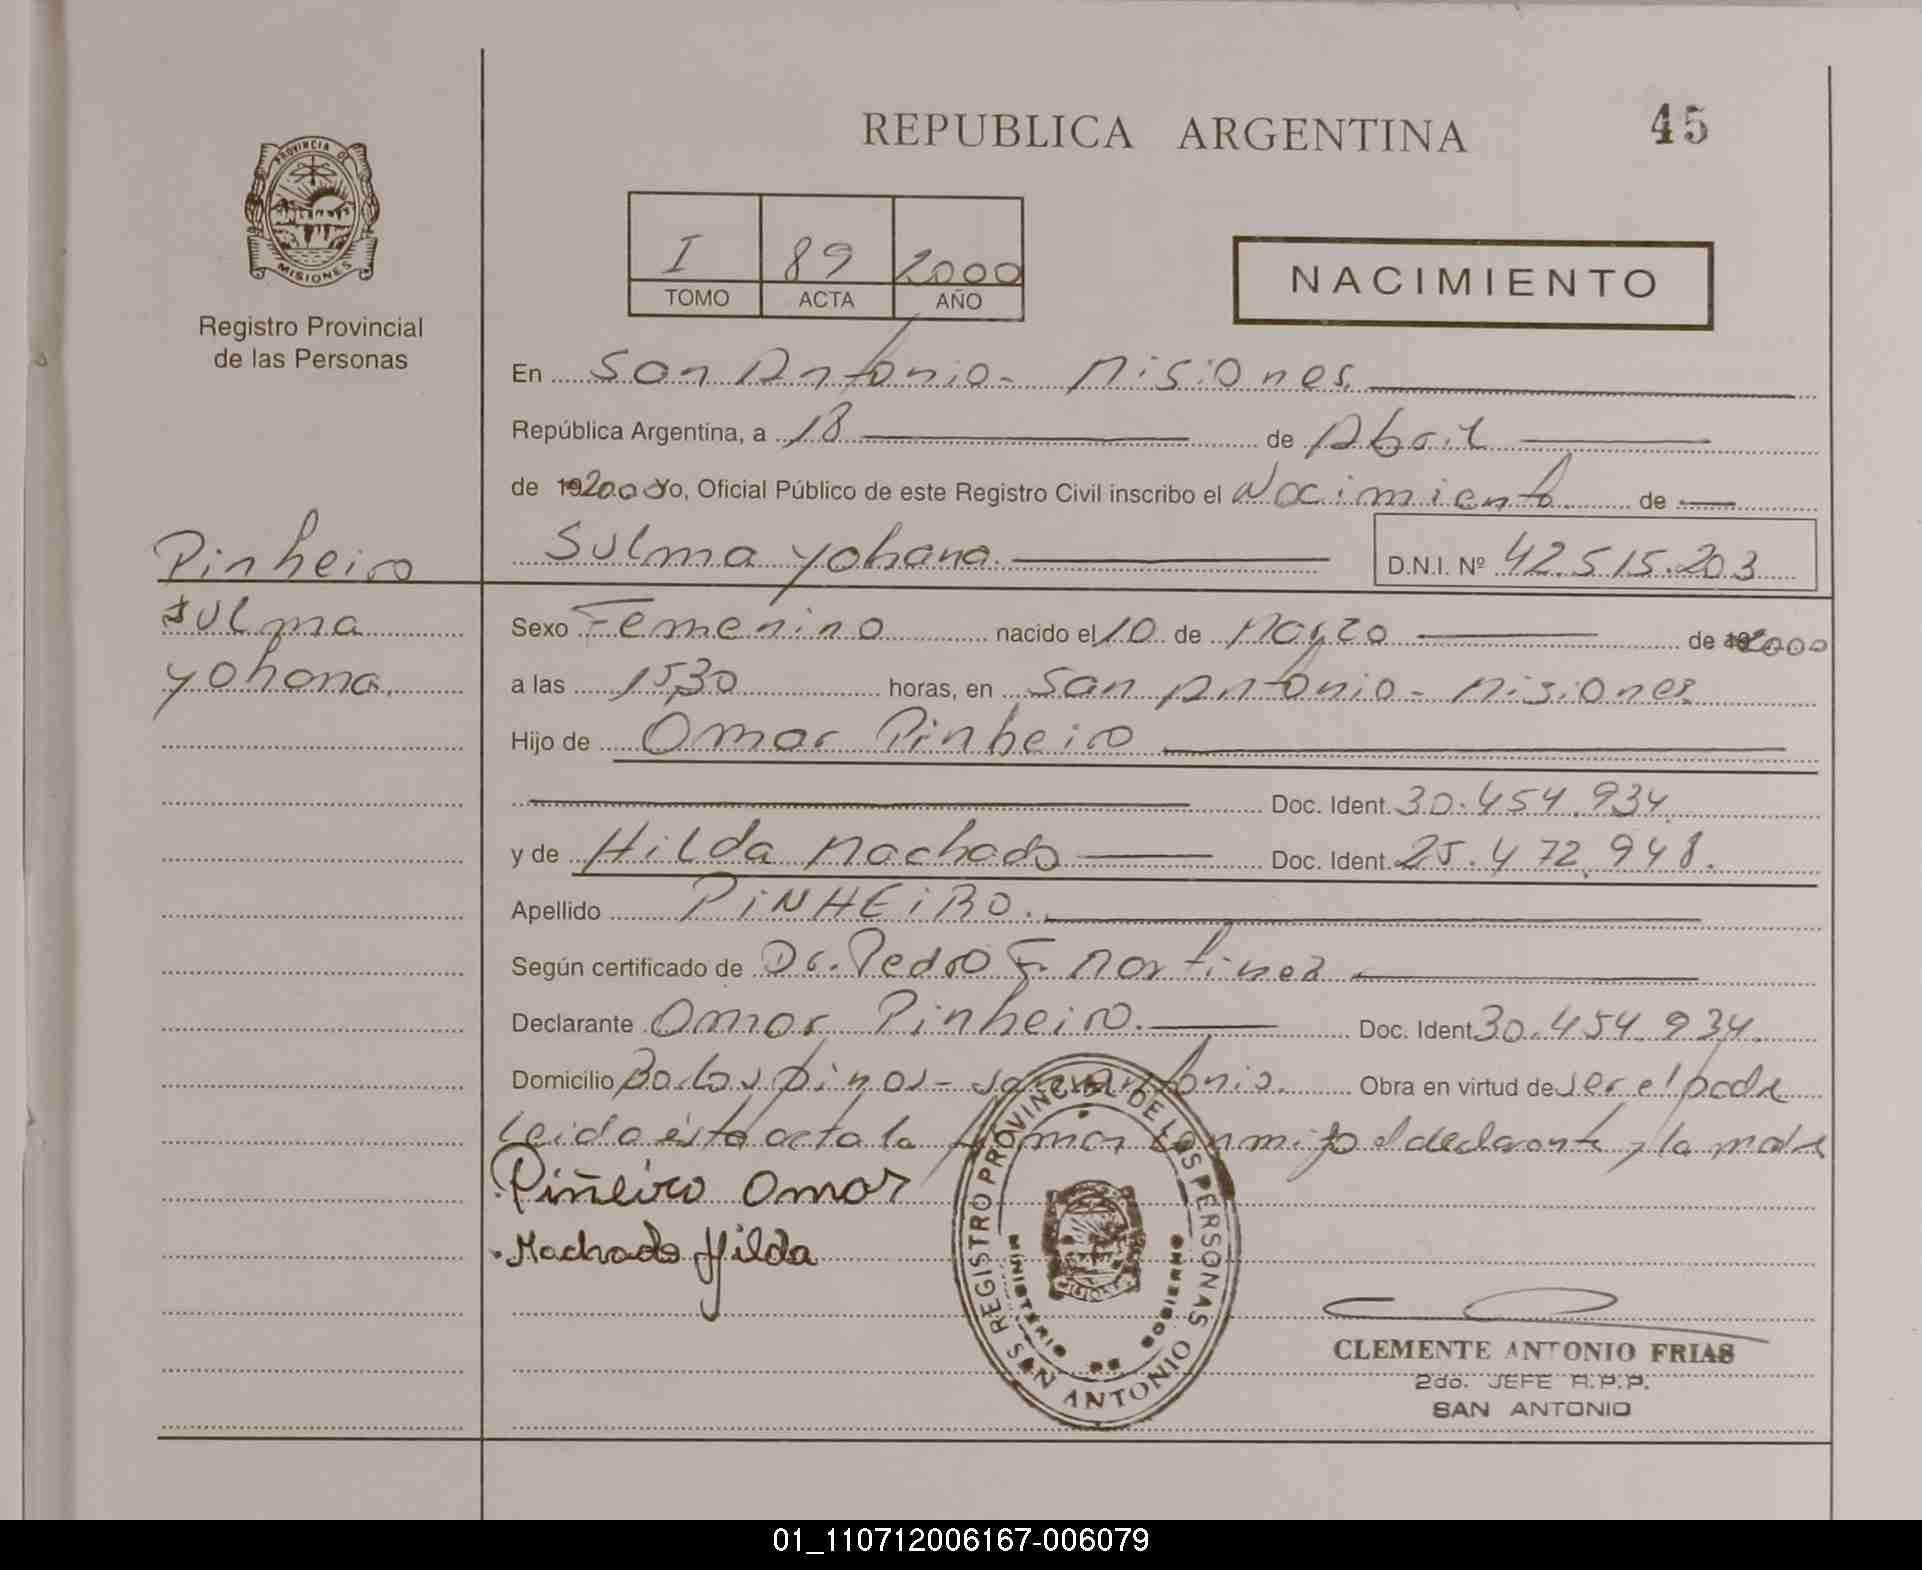 REPUBLICA ARGENTINA
45
PROVINCIA DE
MISIONES
Registro Provincial
de las Personas
I 89 2000
TOMO ACTA AÑO
NACIMIENTO
En San Antonio - Misiones.
República Argentina, a 18 de Abril
de 192000 Yo, Oficial Público de este Registro Civil inscribo el Nacimiento de
Sulma Yohana. D.N.I. Nº 42.515.203
Pinheiro
Sulma
Yohana.
Sexo Femenino nacido el 10 de Marzo de 192000
a las 15,30 horas, en San Antonio - Misiones
Hijo de Omar Pinheiro
Doc. Ident. 30.454.934
y de Hilda Machado Doc. Ident. 25.472.948.
Apellido PiNHEiRO.
Según certificado de Dr. Pedro F. Martinez
Declarante Omar Pinheiro. Doc. Ident. 30.454.934.
Domicilio Bo Los pinos - San Antonio. Obra en virtud de ser el padre
Leida ésta acta la firman conmigo el declarante y la madre
Piñeiro Omar
Machado Hilda
REGISTRO PROVINCIAL DE LAS PERSONAS
MINISTERIO DE GOBIERNO
SAN ANTONIO
CLEMENTE ANTONIO FRIAS
2do. JEFE R.P.P.
SAN ANTONIO
01_110712006167-006079